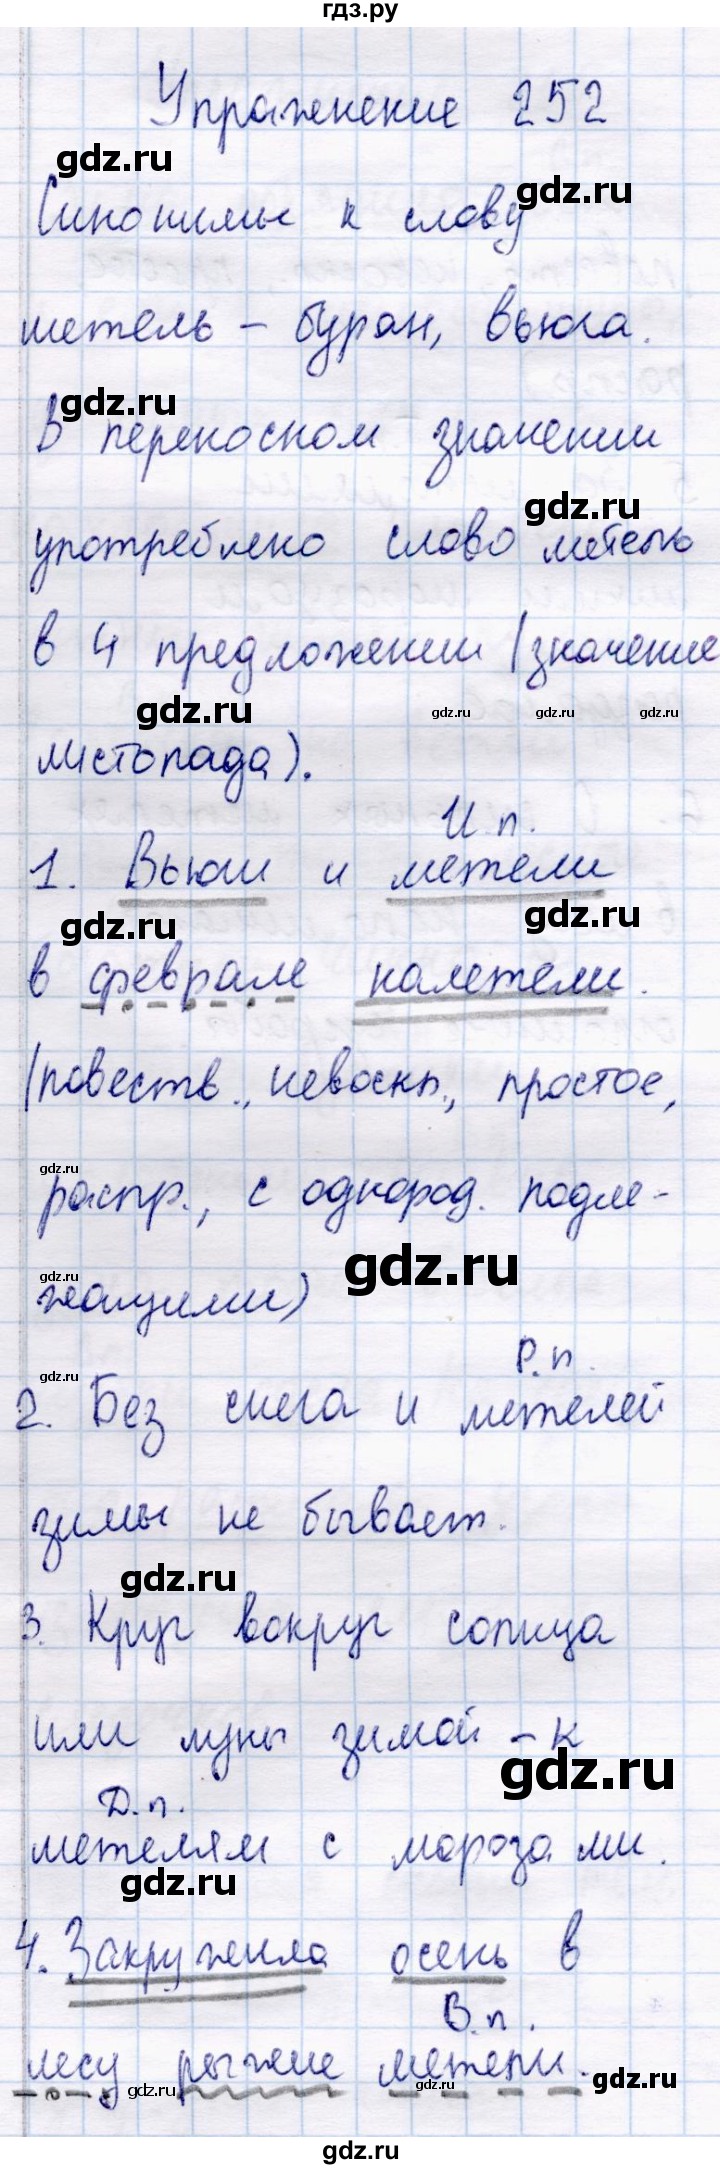 гдз.ру
Упражнение 252
gdz.ru
gdz.ru
Синонимы к слову
метель – буран, вьюга.
gdz.ru
В переносном значении
gdz.ru
употреблено слово метель
в 4 предложении (значение
gdz.ru gdz.ru gdz.ru gdz.ru
листопада).
И.п.
1. Вьюги и метели
gdz.ru
gdz.ru
в феврале налетели.
(повеств., невоскл., простое,
gdz.ru
распр., с однород. подле-
gdz.ru
gdz.ru
жащими)
Р.п.
gdz.ru
2. Без снега и метелей
зимы не бывает.
gdz.ru
3. Круг вокруг солнца
или луны зимой – к
gdz.ru
Д.п.
метелям с морозами.
gdz.ru
4. Закружила осень в
В.п.
лесу рыжие метели.
gdz.ru gdz.ru gdz.ru
gdz.ru